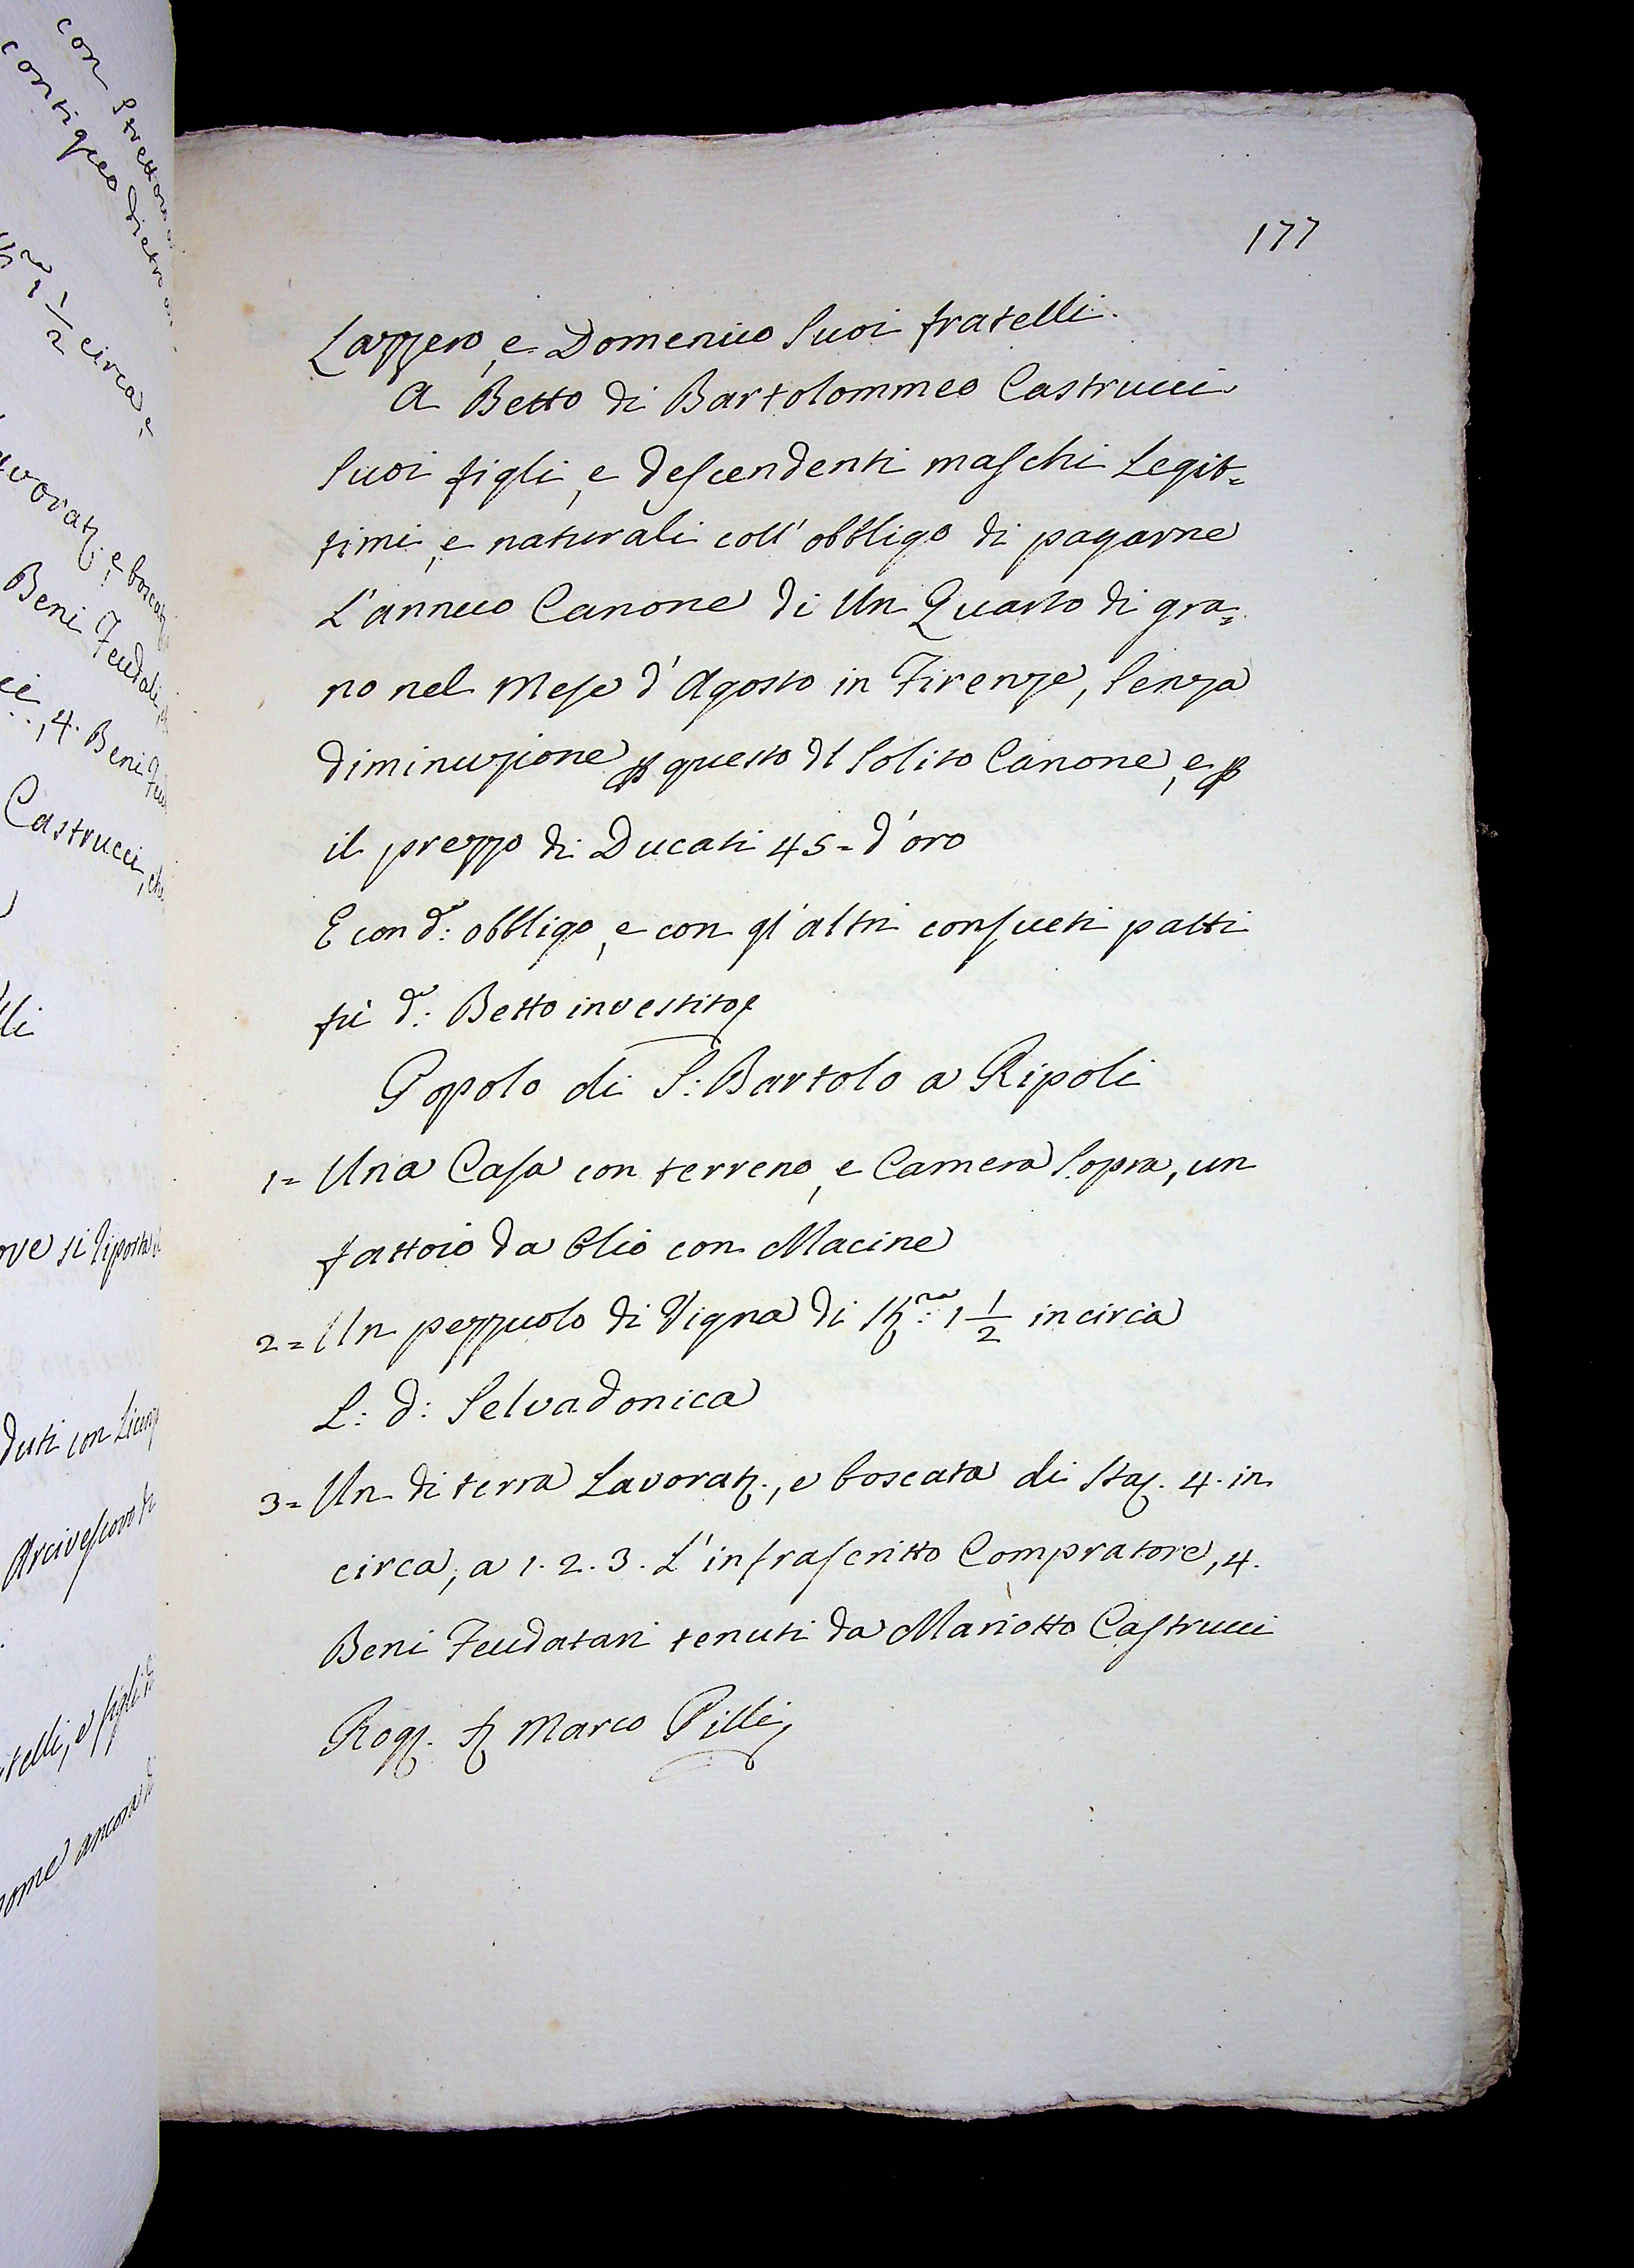 177
Lazzero, e Domenico Suoi fratelli.
A Betto di Bartolommeo Castrucci
Suoi figli, e descendenti maschi Legit=
timi, e naturali coll' obbligo di pagarne
L'annuo Canone di Un Quarto di gra=
no nel Mese d'Agosto in Firenze, Senza
diminuzione p questo dl Solito Canone, e p
il prezzo di Ducati 45= d'oro
E con d.º: obbligo, e con gl'altri consueti patti
fù d.º: Betto investito
Popolo di S: Bartolo a Ripoli
1= Una Casa con terreno, e Camera Sopra, un
fattoio da Olio con Macine
2= Un pezzuolo di Vigna di St.ra: 1 1/2 in circa
L: d: Selvadonica
3= Un di terra Lavorat., e boscata di Sta. 4. in
circa, a 1. 2. 3. L'infrascritto Compratore, 4.
Beni Feudatari tenuti da Mariotto Castrucci
Rog. Marco Pilli
con
contiguo dietro
1 1/2 circa, e
e boscat
Beni Feudali
4. Beni
Castrucci, che
li
ove si
duti con
Arcivescovo
telli, e figli
nome ancora